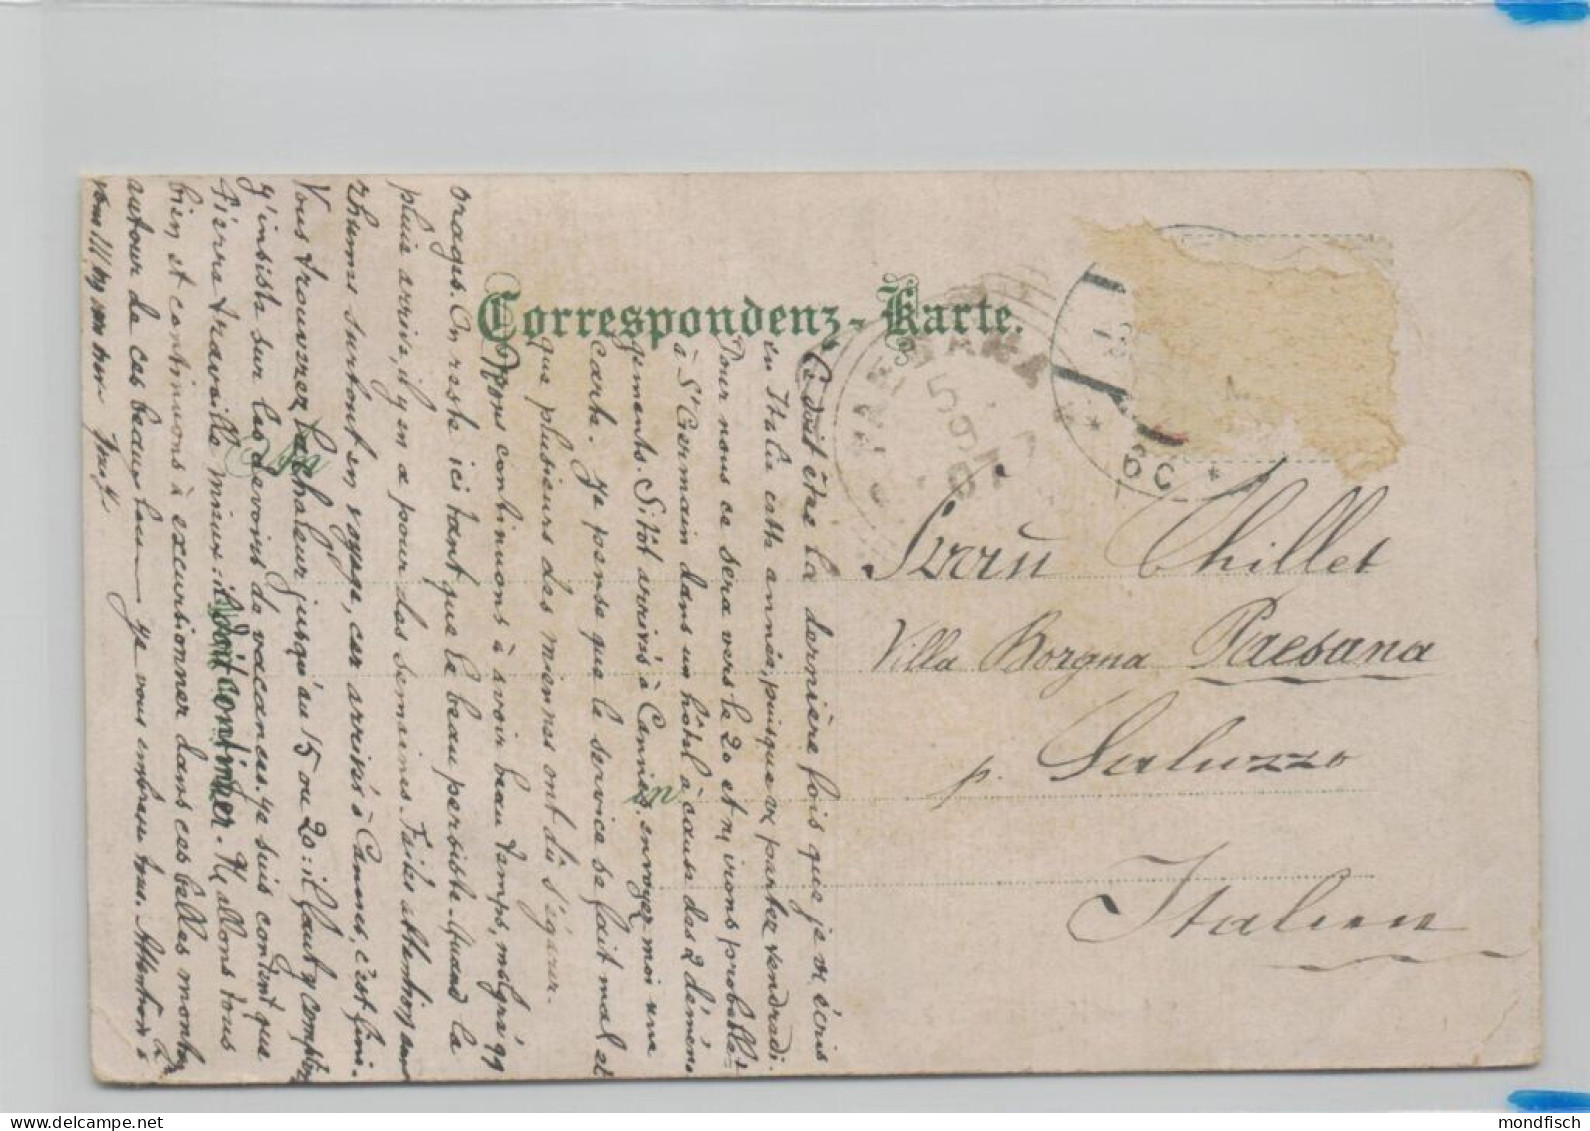 Correspondenz-Karte.
An
in
PAESANA
5 9 07
6C
Frau Chillet
Villa Borgna Paesana
p. Saluzzo
Italien
Ce doit être la dernière fois que je vs écris
en Italie cette année, puisque vs partez vendredi.
Pour nous ce sera vers le 20 et ns irons probablt
à St Germain dans un hôtel à cause des 2 démén-
gements. Sitôt arrivés à Cannes, envoyez moi une
carte. Je pense que le service se fait mal et
que plusieurs des miennes ont dû s'égarer.
Nous continuons à avoir beau temps, malgré qq
orages. On reste ici tant que le beau persiste. Quand la
pluie arrive, il y en a pour des semaines. Faites attention aux
rhumes surtout en voyage, car arrivés à Cannes, c'est fini.
Vous trouverez la chaleur jusqu'au 15 ou 20: il faut y compter
J'insiste sur les devoirs de vacances. Je suis content que
Pierre travaille mieux: il doit continuer. Ns allons tous
bien et continuons à excursionner dans ces belles montag
autour de ces beaux lacs. Je vous embrasse tous. Attention à